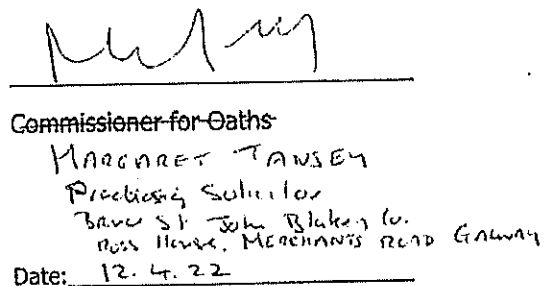 Commissioner for Oaths
MARGARET TANSEY
Practising Solicitor
St John Blake
Ross House, MERCHANTS ROAD GALWAY
Date: 12.4.22